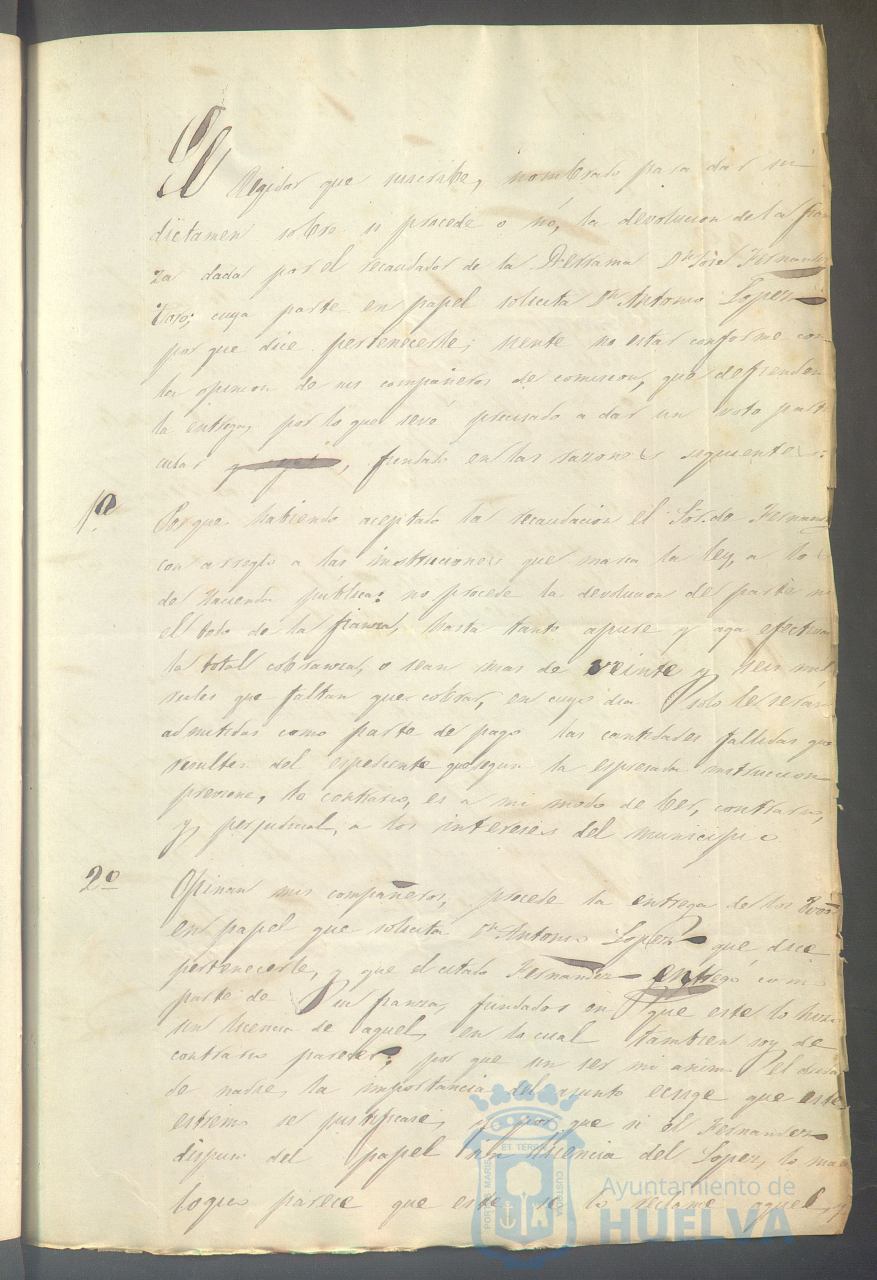 El Regidor que suscribe, nombrado para dar su
dictamen sobre si procede o nó, la devolucion de la fian
za dada por el recaudador de la Derrama Dn José Fernandez
Toro; cuya parte en papel solicita Dn Antonio Lopez
por que dice pertenecerle; siente no estar conforme con
la opinion de sus compañeros de comision, que defienden
la entrega, por lo que se vé precisado a dar un voto parti
cular fundado en las razones siguientes:
1ª Porque habiendo aceptado la recaudacion el Fernandz
con arreglo a las instruciones que marca la ley, a los
de Hacienda pública: no procede la devolucion de parte ni
el todo de la fianza, hasta tanto apure y aga efectiva
la total cobranza, o sean mas de veinte y seis mil
reales que faltan que cobrar, en cuyo dia solo le serán
admitidas como parte de pago las cantidades fallidas que
resulten del espediente que segun la espresada instruccion
previene, lo contrario, es a mi modo de ber, contrario,
y perjudicial, a los intereses del municipio
2º Opinan mis compañeros, procede la entrega de los
en papel que solicita Dn Antonio Lopez que dice
pertenecerle, y que el citado Fernandez entregó como
parte de su fianza, fundados en que este lo hizo
sin licencia de aquel, en lo cual tambien soy de
contrario parecer; por que sin ser mi animo el dudar
de nadie, la importancia del asunto ecsige que este
estremo se justificase, y por que si el Fernandez
dispuso del papel sin licencia del Lopez, lo mas
logico parece que este se lo reclame aquel, y
Ayuntamiento de
HUELVA
PORTUS MARIS ET TERRAE CUSTODIA